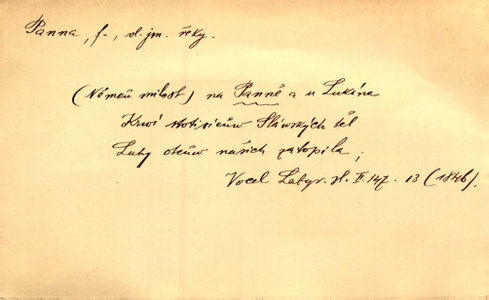 Panna, f., vl. jm. řeky.
(Němců milost) na Panně a u Lukána
Krwí stotisícůw Sláwských těl
Luhy otcůw našich zatopila;
Vocel Labyr. sl. II. 147. 13 (1846).